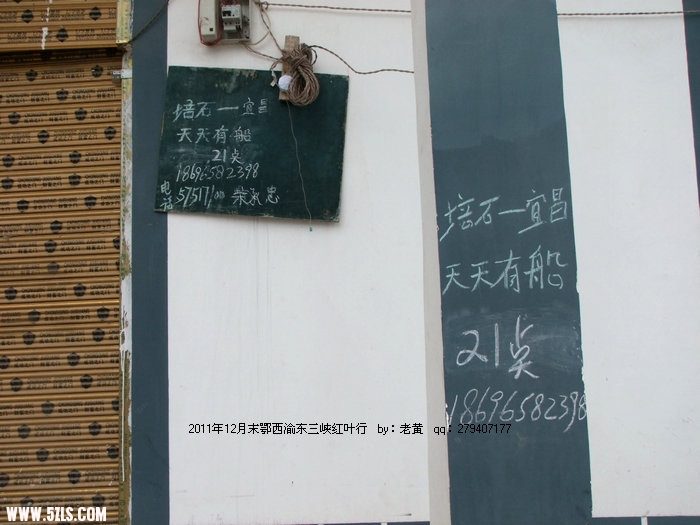 培石一宜昌
天天有船
21点
18696582398
电话
培石一宜昌
天天有船
21点
18696582398
2011年12月末鄂西渝东三峡红叶行 by：老黄 qq：279407177
WWW.5ZLS.COM